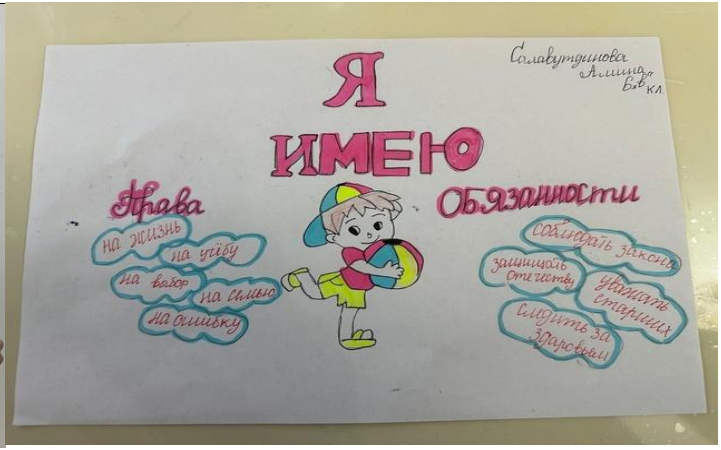 Я
ИМЕЮ
Салавутдинова
Амина
6„в" кл.
Права
на жизнь
на учёбу
на выбор
на семью
на ошибку
Обязанности
соблюдать закона
защищать
отечеству
уважать
старших
следить за
здаровьем